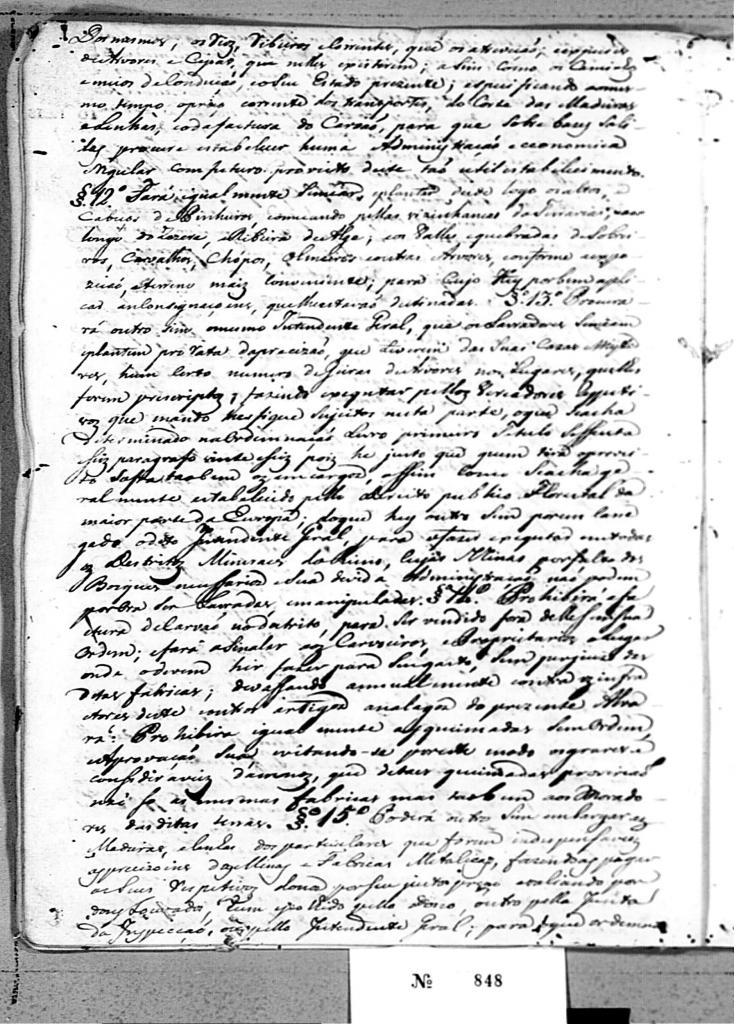 Dos mesmos, os Rios, Ribeiros e Correntes, que os atravessaõ; a especies
de Arvores, e Cepas, que nelles existirem; assim como os Caminhos
e meios de Conduçaõ, e o Seu Estado prezente; especificando ao mes-
mo tempo o preço corrente dos transportes, do Corte das Madeiras
e Lenhas, e da factura do Carvaõ, para que sobre bazes Soli-
das procure estabelecer huma Administraçaõ economica
regular com futuro proveito deste taõ util estabelecimento.
§ 12.º Fará igualmente Semear, e plantar desde logo os altos, e
Cabeços de Pinheiros comecando pellas vizinhancas da Ferraria, e ao
longo do Zezere, e Ribeira de Alge; e os Valles, e quebradas de Sobrei-
ros, Carvalhos, Chopos, Olmeiros e outras Arvores, conforme a expo-
ziçaõ, e terreno mais conveniente; para Cujo Hey por bem apli-
car as Consignaçoens, que lhe estaraõ destinadas. § 13.º Procura-
rá outro Sim o mesmo Intendente Geral, que os Lavradores Semêem
e plantem pro rata da precizaõ, que tiverem das Suas Cazas e Miste-
res, hum Certo numero de Geiras de Arvores nos Lugares, que lhes
forem prescriptos; fazendo executar pellos Vereadores respecti-
vos que mando lhes fique Sujeitos nesta parte, o que Se acha
determinado na Ordenaçaõ Livro primeiro Titulo Sessenta
e Seis paragrafo vinte e Seis pois he justo que quem tira o provei-
to Soffra tambem os encargos, assim como Se acha ge-
ralmente estabelecido pello Direito publico Florestal da
maior parte da Europa; do que hey outro Sim por em Carre-
gado o dito Intendente Geral, para o fazer executar em todos
os Destritos Mineraes do Reino, Cujas Minas por falta de
Bosques necessarios e Sua devida Administraçaõ naõ podem
por ora Ser Lavradas, e manipuladas. § 14.º Prohibirá a fa-
ctura de Carvaõ no districto, para Ser vendido fora delle Sem Sua
Ordem; e fará assinalar aos Carvoeiros, e Proprietarios o Lugar
onde o devem hir fazer para Seu gasto, Sem prejuizo das
ditas fabricas; devassando annualmente contra os infra-
ctores deste e outros artigos analagos do prezente Alva-
rá. Prohibirá igualmente as queimadas Sem Ordem,
e Aprovaçaõ Sua, evitando-se por este modo os graves e
consideraveis damnos, que destas queimadas proviriaõ
naõ só as mesmas fabricas mas tambem aos Morado-
res das ditas terras. § 15.º Poderá outro Sim embargar as
Madeiras, e lenhas dos particulares que forem indispensaveis
ás precizoens das Minas e Fabricas Metalicas, fazendo as pagar
a Seus respetivos donos por Seu justo preço avaliando por
dous Louvados, hum escolhido pello dono outro pella Junta
da Inspecçaõ, ou pello Intendente Geral; para o que ordena
Nº 848